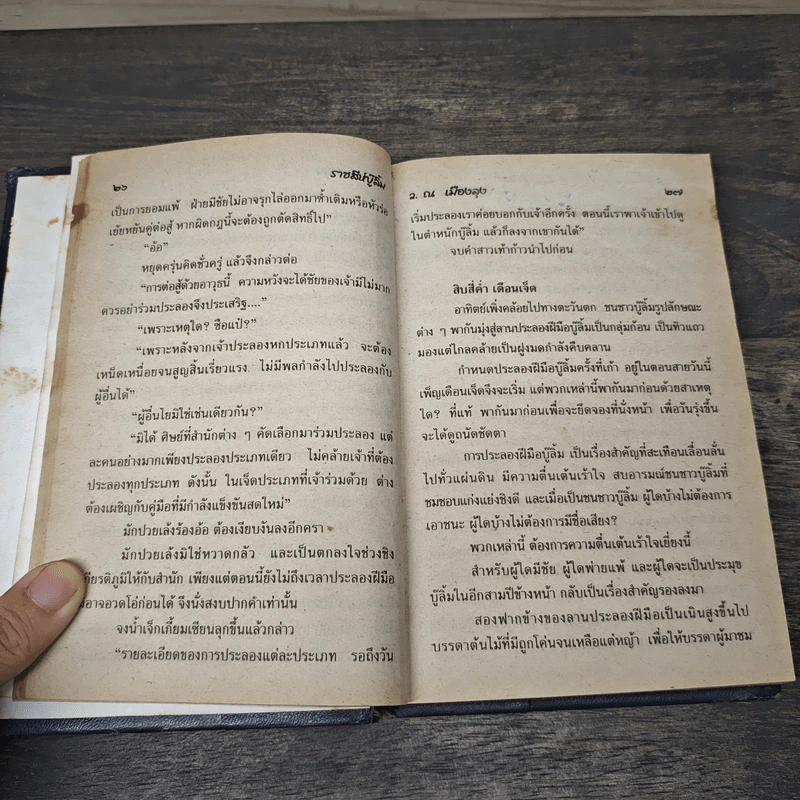 ๒๖ ราชสีห์บู๊ลิ้ม
เป็นการยอมแพ้ ฝ่ายมีชัยไม่อาจรุกไล่ออกมาซ้ำเติมหรือหัวร่อ
เย้ยหยันคู่ต่อสู้ หากผิดกฎนี้จะต้องถูกตัดสิทธิ์ไป”
“อ้อ”
หยุดครุ่นคิดชั่วครู่ แล้วจึงกล่าวต่อ
“การต่อสู้ด้วยอาวุธนี้ ความหวังจะได้ชัยของเจ้ามีไม่มาก
ควรอย่าร่วมประลองจึงประเสริฐ....”
“เพราะเหตุใด? ซือแป๋?”
“เพราะหลังจากเจ้าประลองหกประเภทแล้ว จะต้อง
เหน็ดเหนื่อยจนสูญสิ้นเรี่ยวแรง ไม่มีพลกำลังไปประลองกับ
ผู้อื่นได้”
“ผู้อื่นไยมิใช่เช่นเดียวกัน?”
“มิได้ ศิษย์ที่สำนักต่าง ๆ คัดเลือกมาร่วมประลอง แต่
ละคนอย่างมากเพียงประลองประเภทเดียว ไม่คล้ายเจ้าที่ต้อง
ประลองทุกประเภท ดังนั้น ในเจ็ดประเภทที่เจ้าร่วมด้วย ต่าง
ต้องเผชิญกับคู่มือที่มีกำลังแข็งขันสดใหม่”
มักปวยเล้งร้องอ้อ ต้องเงียบงันลงอีกครา
มักปวยเล้งมิใช่หวาดกลัว และเป็นตกลงใจช่วงชิง
กียรติภูมิให้กับสำนัก เพียงแต่ตอนนี้ยังไม่ถึงเวลาประลองฝีมือ
อาจอวดโอ่ก่อนได้ จึงนั่งสงบปากคำเท่านั้น
จงน้ำเจ็กเกี้ยมเซียนลุกขึ้นแล้วกล่าว
“รายละเอียดของการประลองแต่ละประเภท รอถึงวัน
ว. ณ เมืองลุง ๒๗
เริ่มประลองเราค่อยบอกกับเจ้าอีกครั้ง ตอนนี้เราพาเจ้าเข้าไปดู
ในตำหนักบู๊ลิ้ม แล้วก็ลงจากเขากันได้”
จบคำสาวเท้าก้าวนำไปก่อน
สิบสี่ค่ำ เดือนเจ็ด
อาทิตย์เพิ่งคล้อยไปทางตะวันตก ชนชาวบู๊ลิ้มรูปลักษณะ
ต่าง ๆ พากันมุ่งสู่ลานประลองฝีมือบู๊ลิ้มเป็นกลุ่มก้อน เป็นทิวแถว
มองแต่ไกลคล้ายเป็นฝูงมดกำลังคืบคลาน
กำหนดประลองฝีมือบู๊ลิ้มครั้งที่เก้า อยู่ในตอนสายวันนี้
เพ็ญเดือนเจ็ดจึงจะเริ่ม แต่พวกเหล่านี้พากันมาก่อนด้วยสาเหตุ
ใด? ที่แท้ พากันมาก่อนเพื่อจะยึดจองที่นั่งหน้า เพื่อวันรุ่งขึ้น
จะได้ดูถนัดชัดตา
การประลองฝีมือบู๊ลิ้ม เป็นเรื่องสำคัญที่สะเทือนเลื่อนลั่น
ไปทั่วแผ่นดิน มีความตื่นเต้นเร้าใจ สบอารมณ์ชนชาวบู๊ลิ้มที่
ชมชอบแก่งแย่งชิงดี และเมื่อเป็นชนชาวบู๊ลิ้ม ผู้ใดบ้างไม่ต้องการ
เอาชนะ ผู้ใดบ้างไม่ต้องการมีชื่อเสียง?
พวกเหล่านี้ ต้องการความตื่นเต้นเร้าใจเยี่ยงนี้
สำหรับผู้ใดมีชัย ผู้ใดพ่ายแพ้ และผู้ใดจะเป็นประมุข
บู๊ลิ้มในอีกสามปีข้างหน้า กลับเป็นเรื่องสำคัญรองลงมา
สองฟากข้างของลานประลองฝีมือเป็นเนินสูงขึ้นไป
บรรดาต้นไม้ที่มีถูกโค่นจนเหลือแต่หญ้า เพื่อให้บรรดาผู้มาชม